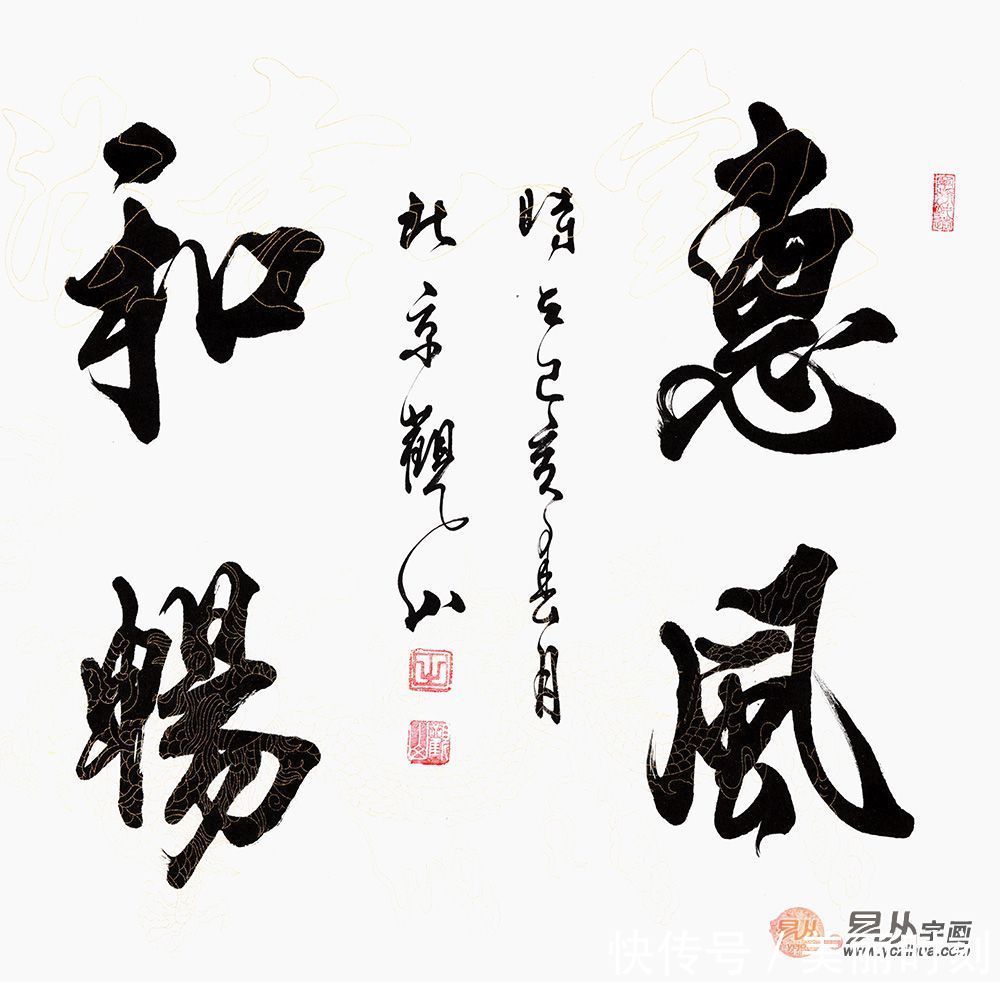 惠風
時在己亥年春月
北京觀山
和暢
易从字画
www.yczihua.com
快传号 / 美丽时刻